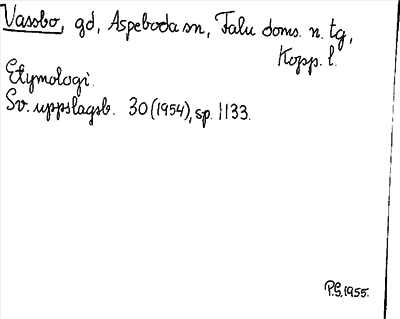 Vassbo, gd, Aspeboda sn, Falu doms. n. tg,
Kopp. l.
Etymologi.
Sv. uppslagsb. 30 (1954), sp. 1133.
P.G. 1955.